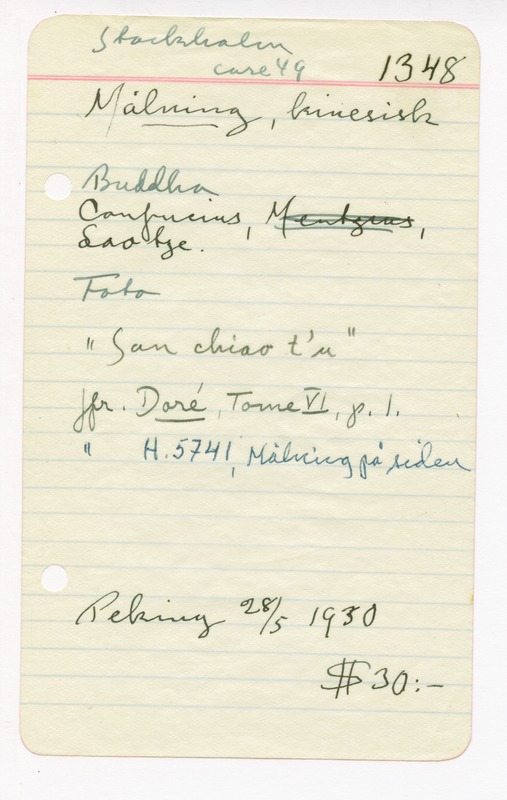 Stockholm
case 49
1348
Målning, kinesisk
Buddha
Confucius, Mentzius,
Laotze.
Foto
"San chiao t'u"
jfr. Doré, Tome VI, p. 1.
" H.5741, Målning på siden
Peking 28/5 1930
$30:-